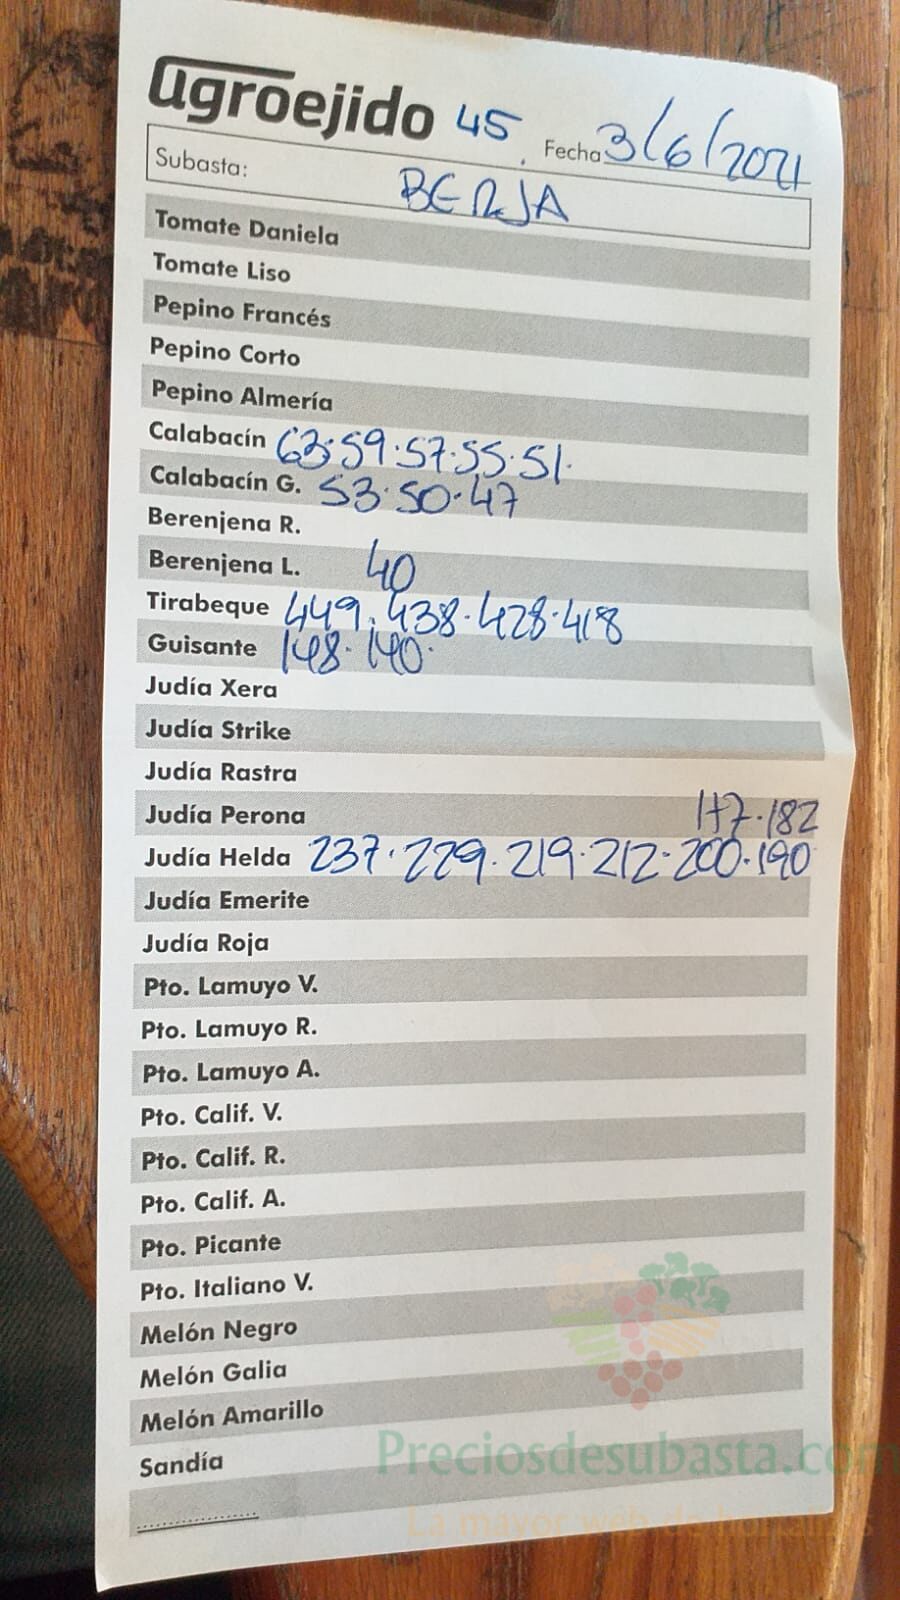 agroejido 45 Fecha 3/6/2021
Subasta: BERJA
Tomate Daniela
Tomate Liso
Pepino Francés
Pepino Corto
Pepino Almería
Calabacín 63·59·57·55·51·
Calabacín G. 53·50·47
Berenjena R.
Berenjena L. 40
Tirabeque 449·438·428·418
Guisante 148·140·
Judía Xera
Judía Strike
Judía Rastra
Judía Perona 182
Judía Helda 237·229·219·212·200·190
Judía Emerite
Judía Roja
Pto. Lamuyo V.
Pto. Lamuyo R.
Pto. Lamuyo A.
Pto. Calif. V.
Pto. Calif. R.
Pto. Calif. A.
Pto. Picante
Pto. Italiano V.
Melón Negro
Melón Galia
Melón Amarillo
Sandía
Preciosdesubasta.com
La mayor web de hortalizas